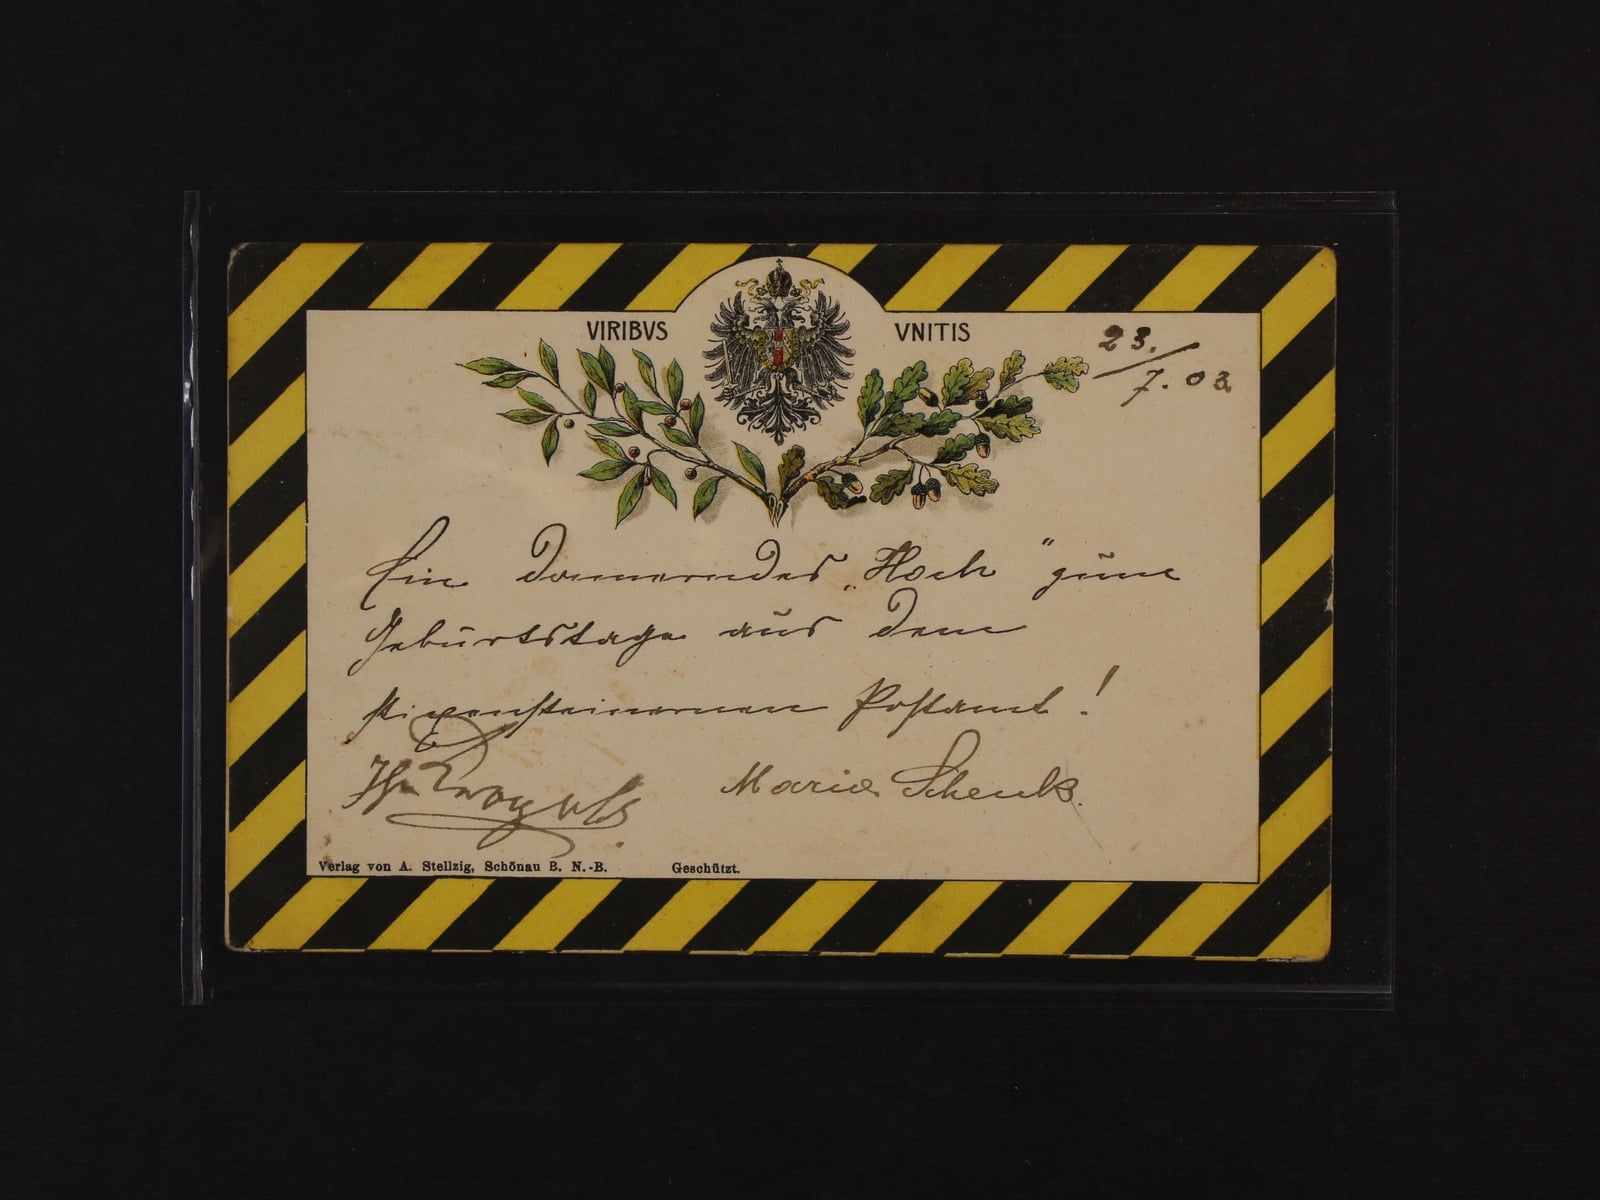 VIRIBVS VNITIS
23./7. 03
Ein donnerndes „Hoch“ zum
Geburtstage aus dem
stixensteinernen Postamt!
Marie Schenk.
Verlag von A. Stellzig, Schönau B. N.-B. Geschützt.